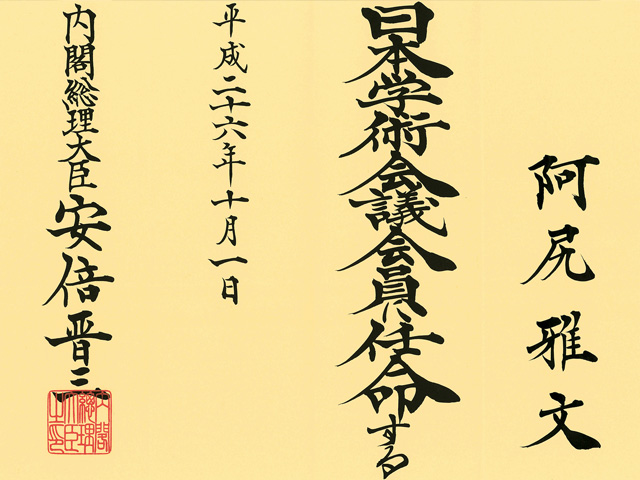 阿尻雅文
日本学術会議会員に任命する
平成二十六年十月一日
内閣総理大臣 安倍晋三
内閣總理大臣之印